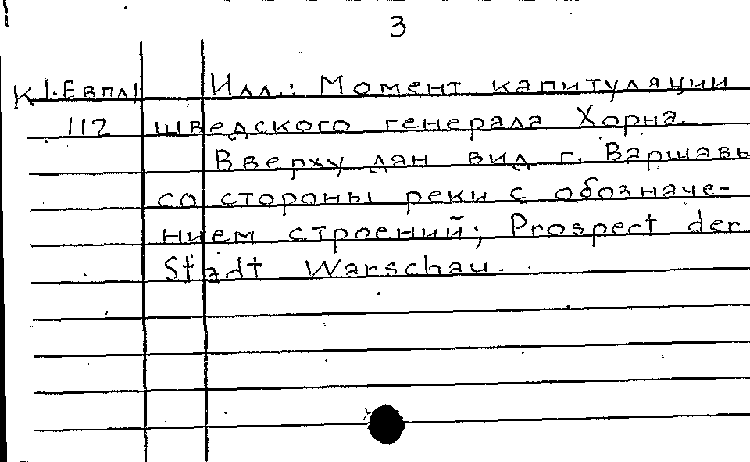 3
К 1-Евпл Илл.: Момент капитуляции
112 шведского генерала Хорна.
Вверху дан вид г. Варшавы
со стороны реки с обозначе-
нием строений; Prospect der
Stadt Warschau.